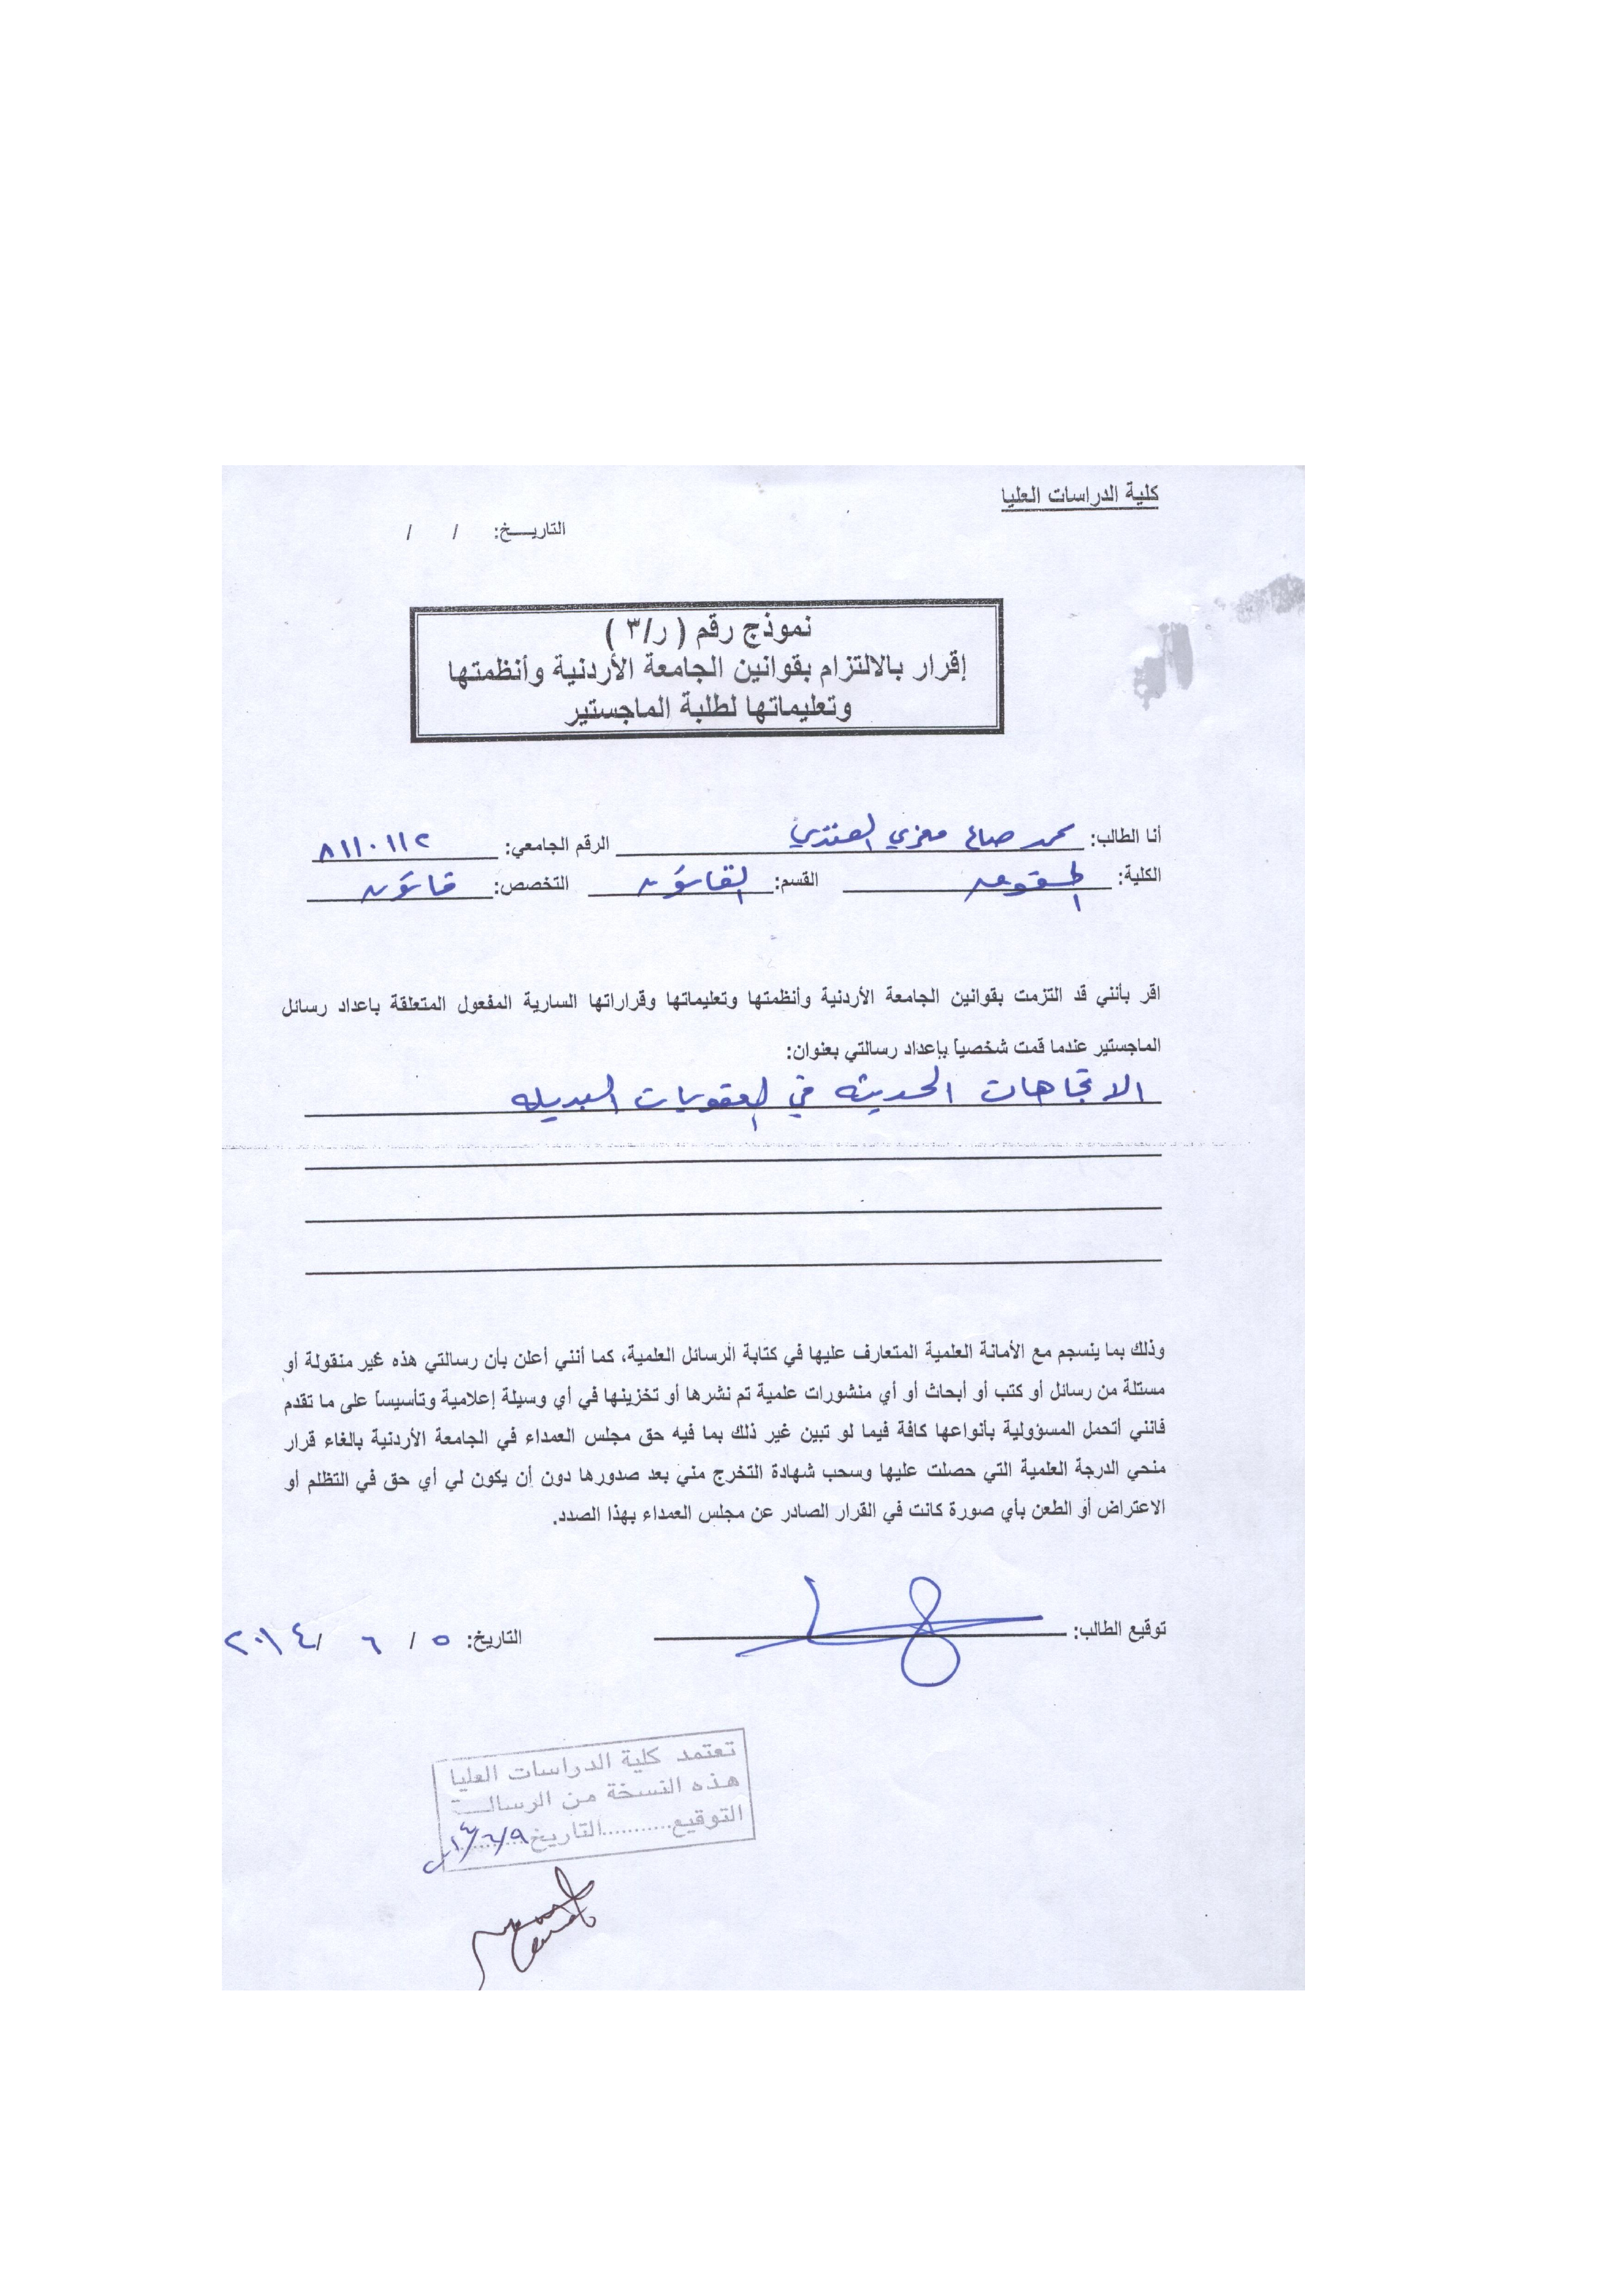 كلية الدراسات العليا
التاريـــخ: / /
نموذج رقم ( ر/٣ )
إقرار بالالتزام بقوانين الجامعة الأردنية وأنظمتها
وتعليماتها لطلبة الماجستير
أنا الطالب: محمد صالح العنزي الرقم الجامعي: ٨١١٠١١٢
الكلية: الحقوق القسم: القانون التخصص: قانون
اقر بأنني قد التزمت بقوانين الجامعة الأردنية وأنظمتها وتعليماتها وقراراتها السارية المفعول المتعلقة باعداد رسائل
الماجستير عندما قمت شخصياً بإعداد رسالتي بعنوان:
الاتجاهات الحديثه في العقوبات البديله
وذلك بما ينسجم مع الأمانة العلمية المتعارف عليها في كتابة الرسائل العلمية، كما أنني أعلن بأن رسالتي هذه غير منقولة أو
مستلة من رسائل أو كتب أو أبحاث أو أي منشورات علمية تم نشرها أو تخزينها في أي وسيلة إعلامية وتأسيساً على ما تقدم
فانني أتحمل المسؤولية بأنواعها كافة فيما لو تبين غير ذلك بما فيه حق مجلس العمداء في الجامعة الأردنية بالغاء قرار
منحي الدرجة العلمية التي حصلت عليها وسحب شهادة التخرج مني بعد صدورها دون أن يكون لي أي حق في التظلم أو
الاعتراض أو الطعن بأي صورة كانت في القرار الصادر عن مجلس العمداء بهذا الصدد.
توقيع الطالب: التاريخ: ٥ / ٦ /٢٠١٤
تعتمد كلية الدراسات العليا
هذه النسخة من الرسالـــة
التوقيع...........التاريخ ٩/٦/١٤